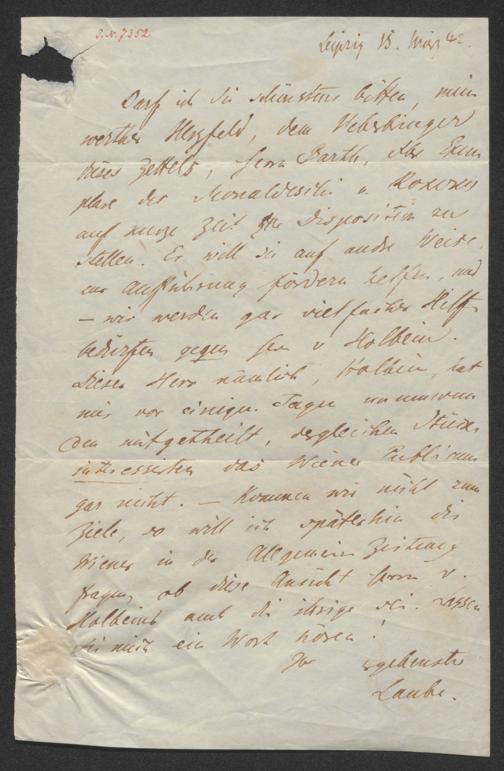 J.N. 7352
Leipzig 15. März 4
Darf ich Sie schönstens bitten, mein
werther Herzfeld, dem Ueberbringer
dieses Zettels, Herrn Barth, Ihr Exem
plar des Monaldeschi u. Rokoko
auf kurze Zeit zur Disposition zu
stellen. Er will sie auf andre Weise,
zur Aufführung fördern helfen, und
– wir werden gar vielfacher Hilfe
bedürfen gegen Hrn v Holbein.
Dieser Herr nämlich, Holbein, hat
mir vor einigen Tagen
den mitgetheilt, dergleichen Stücke
interessirten das Wiener Publicum
gar nicht. – Kommen wir nicht zum
Ziele, so will ich späterhin die
Wiener in der Allgemeinen Zeitung
fragen, ob diese Ansicht Herrn v.
Holbeins auch die ihrige sei. Lassen
Sie mich ein Wort hören!
Ihr ergebenster
Laube.